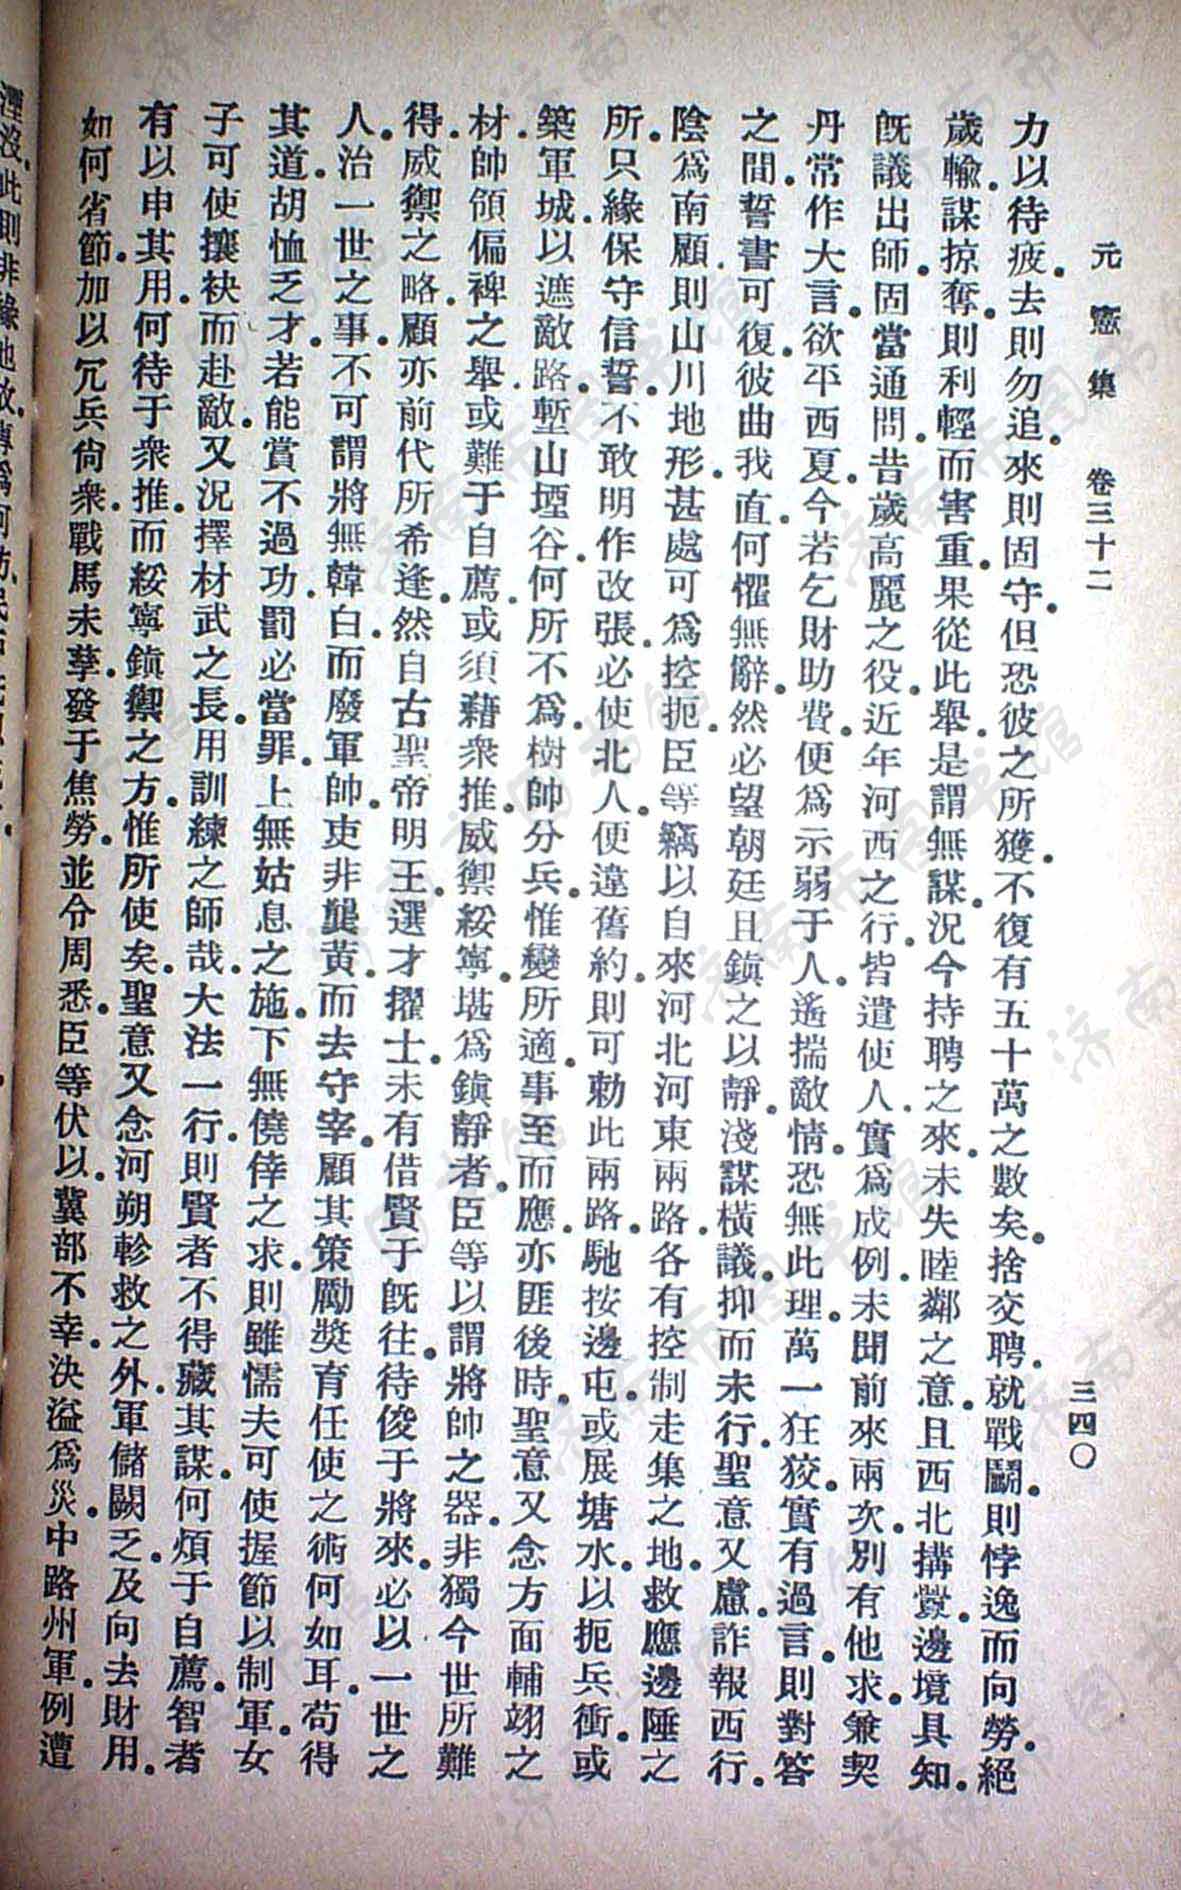 元憲集　卷三十二　三四〇
力以待疲。去則勿追。來則固守。但恐彼之所獲。不復有五十萬之數矣。捨交聘。就戰鬭。則悖逸而向勞。絕
歲輸。謀掠奪。則利輕而害重。果從此舉。是謂無謀。況今持聘之來。未失睦鄰之意。且西北搆釁。邊境具知。
旣議出師。固當通問。昔歲高麗之役。近年河西之行。皆遣使人。實爲成例。未聞前來兩次。別有他求。兼契
丹常作大言。欲平西夏。今若乞財助費。便爲示弱于人。遙揣敵情。恐無此理。萬一狂狡。實有過言。則對答
之間。誓書可復。彼曲我直。何懼無辭。然必望朝廷且鎭之以靜。淺謀橫議。抑而未行。聖意又慮。詐報西行。
陰爲南顧。則山川地形。甚處可爲控扼。臣等竊以自來河北河東兩路。各有控制走集之地。救應邊陲之
所。只緣保守信誓。不敢明作改張。必使北人。便違舊約。則可勑此兩路。馳按邊屯。或展塘水。以扼兵衝。或
築軍城。以遮敵路。塹山堙谷。何所不爲。樹帥分兵。惟變所適。事至而應。亦匪後時。聖意又念方面輔翊之
材。帥領偏裨之舉。或難于自薦。或須藉衆推。威禦綏寧。堪爲鎭靜者。臣等以謂將帥之器。非獨今世所難
得。威禦之略。顧亦前代所希逢。然自古聖帝明王。選才擢士。未有借賢于旣往。待俊于將來。必以一世之
人。治一世之事。不可謂將無韓白。而廢軍帥。吏非龔黃。而去守宰。顧其策勵獎育任使之術何如耳。苟得
其道。胡恤乏才。若能賞不過功。罰必當罪。上無姑息之施。下無僥倖之求。則雖懦夫可使握節以制軍。女
子可使攘袂而赴敵。又況擇材武之長。用訓練之師哉。大法一行。則賢者不得藏其謀。何煩于自薦。智者
有以申其用。何待于衆推。而綏寧鎭禦之方。惟所使矣。聖意又念河朔軫救之外。軍儲闕乏。及向去財用。
如何省節。加以冗兵尙衆。戰馬未孳。發于焦勞。並令周悉。臣等伏以冀部不幸。決溢爲災。中路州軍。例遭